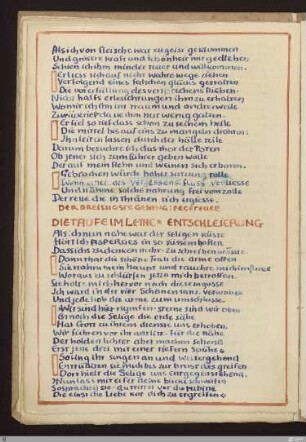 Als ich von fleische war zu geist geklommen
Und grössre kraft und schönheit mir gediehen:
Schien ich ihm minder teuer und willkommen.
Er liess sich auf nicht wahre wege ziehen
Verfolgend eines falschen glücks gestalten
Die vor erfüllung des versprechens fliehen.
Nicht halfs erleuchtungen ihm zu erhalten
Womit ich ihn im traum und andrerweile
Zurückrief da sie ihm nur wenig galten.
Er fiel so tief dass schon zu seinem heile
Die mittel bis auf eins zu mangeln drohten:
Ihn leiten lassen durch der hölle teile
Darum besuchte ich das thor der Toten
Ob jener sich zum führer geben wolle
Der auf mein flehn und weinen sich erboten.
Gebrochen würde hoher satzung rolle
Wenn einer des Vergessens fluss verliesse
Und nähme solche nahrung frei vom zolle
Der reue die in thränen sich ergiesse.
DER DREISSIGSTE GESANG · FEGEFEUER
DIE TAUFE IM LETHE · ENTSCHLEIERUNG
Als ich nun nahe war der seligen küste
Hört ich ASPERGES ME so süssenhaften
Dass ichs zu denken nicht zu schreiben wüsste.
Dann that die schöne Frau die arme offen
Sie nahm mein haupt und tauchte mich im flusse
Woraus zu schlürfen jezo mich betroffen.
Sie holte mich hervor nach diesem gusse
Ich ward in der vier Schönen tanz verwoben
Und jede hob die arme zum umschlusse.
Wir sind hier nymfen · sterne sind wir oben
Hat Gott zu ihrem dienste uns erhoben.
Wir führen vor ihr antlitz · Für die nähe
Der holden lichter aber machen scharf
Erst jene drei mit einer tiefern Spähe
So fing ihr singen an und weitergehend
Dort hielt die Selige uns entgegensehend.